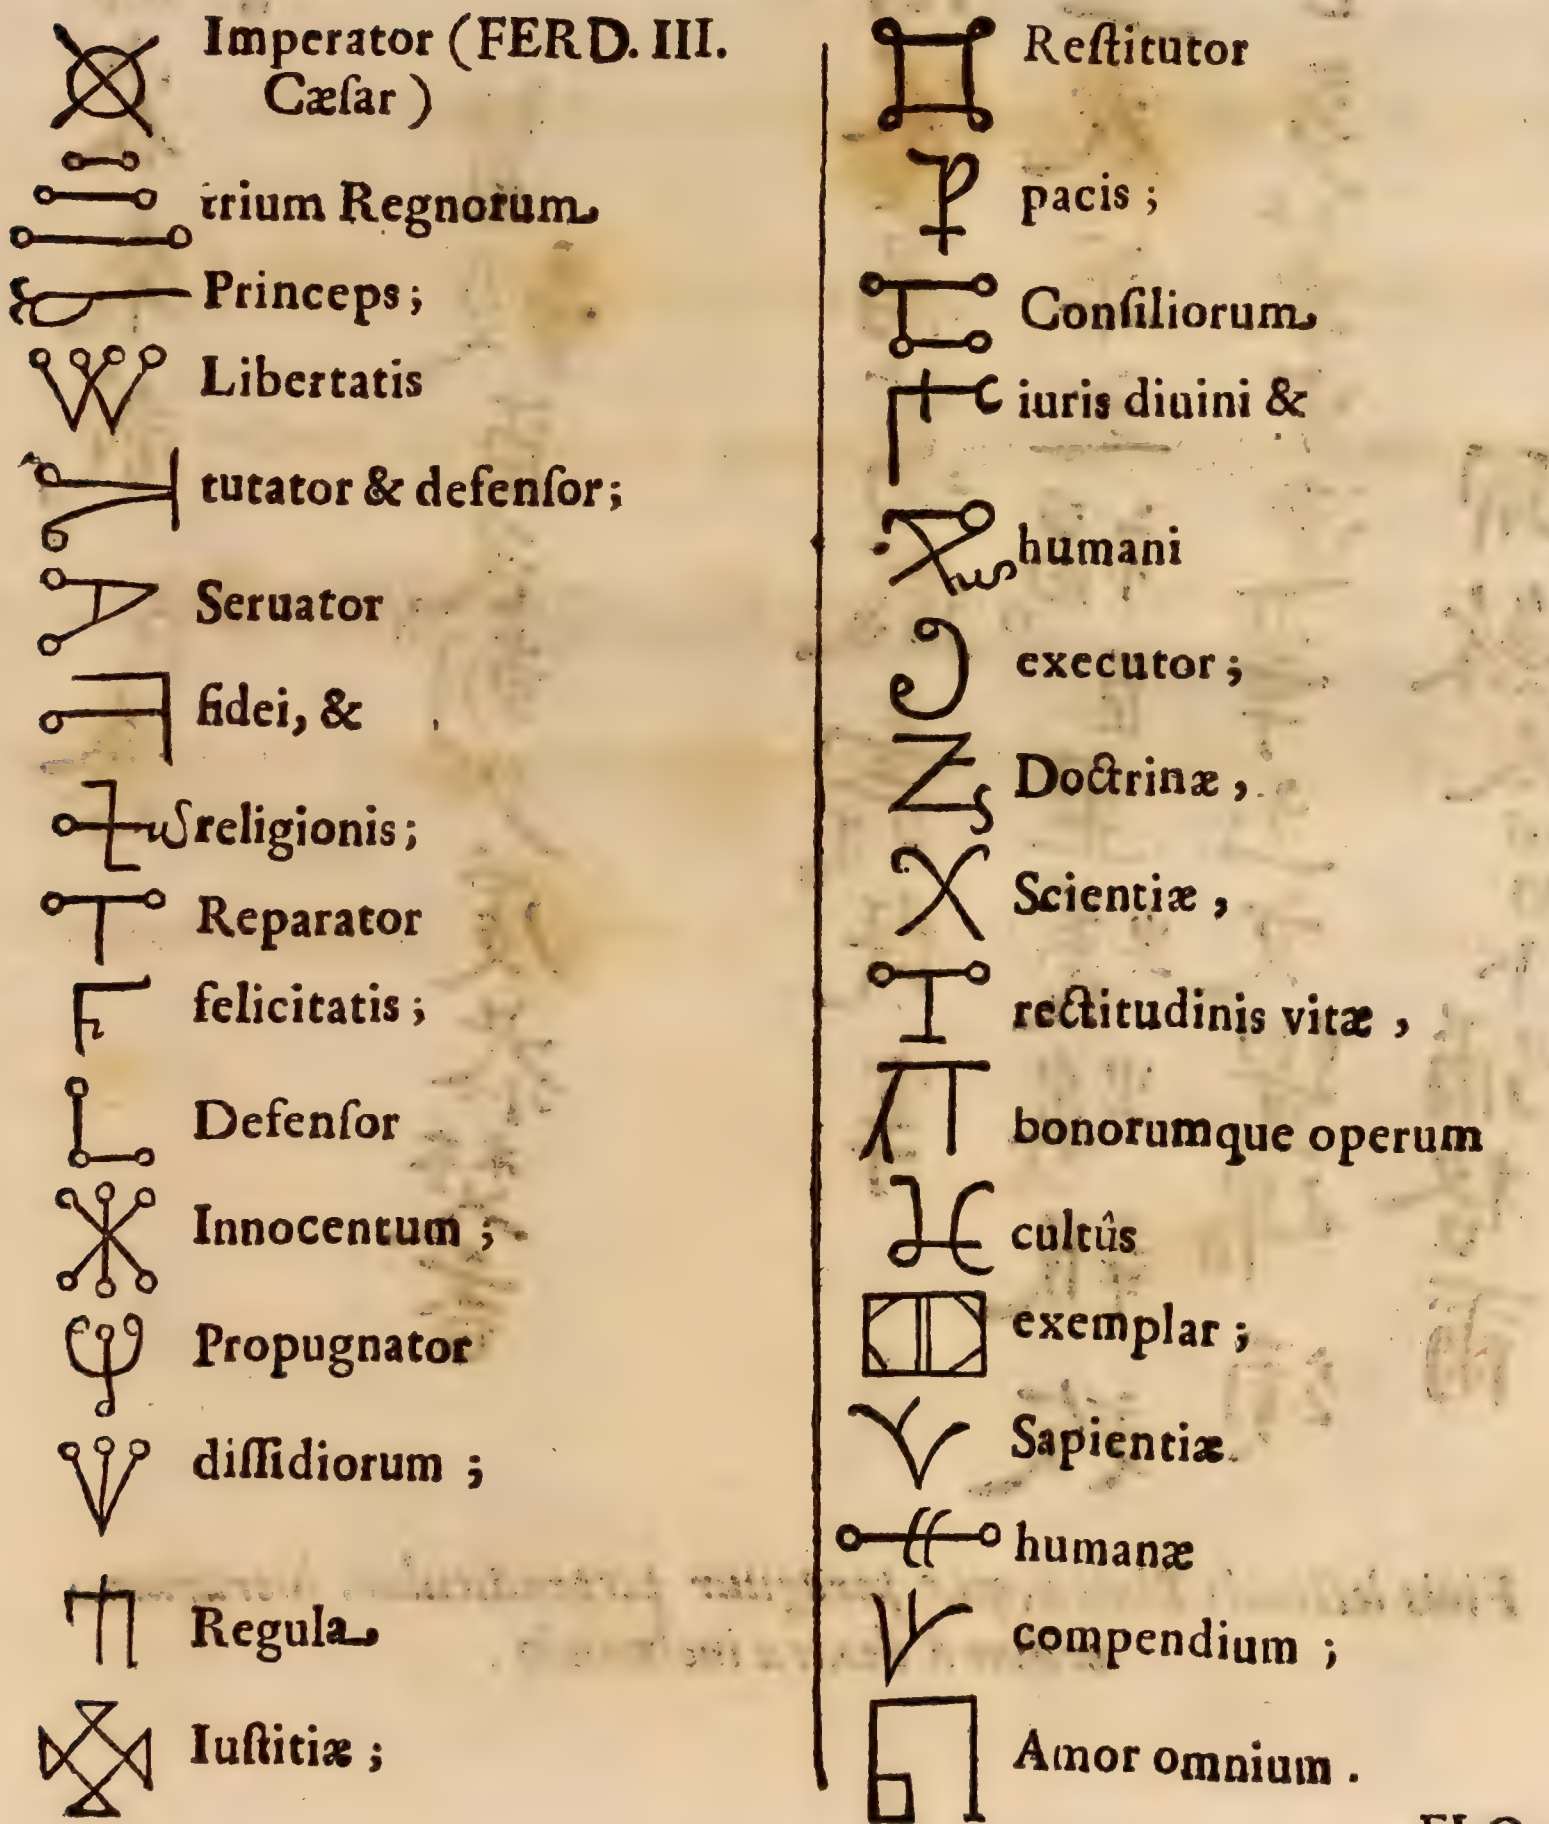 Imperator (FERD. III.
Cæſar )
trium Regnorum
Princeps;
Libertatis
tutator & defenſor;
Seruator
fidei, &
religionis;
Reparator
felicitatis;
Defenſor
Innocentum;
Propugnator
diſſidiorum;
Regula
Iuſtitiæ;
Reſtitutor
pacis;
Conſiliorum
iuris diuini &
humani
executor;
Doctrinæ,
Scientiæ,
rectitudinis vitæ,
bonorumque operum
cultûs
exemplar;
Sapientiæ
humanæ
compendium;
Amor omnium.